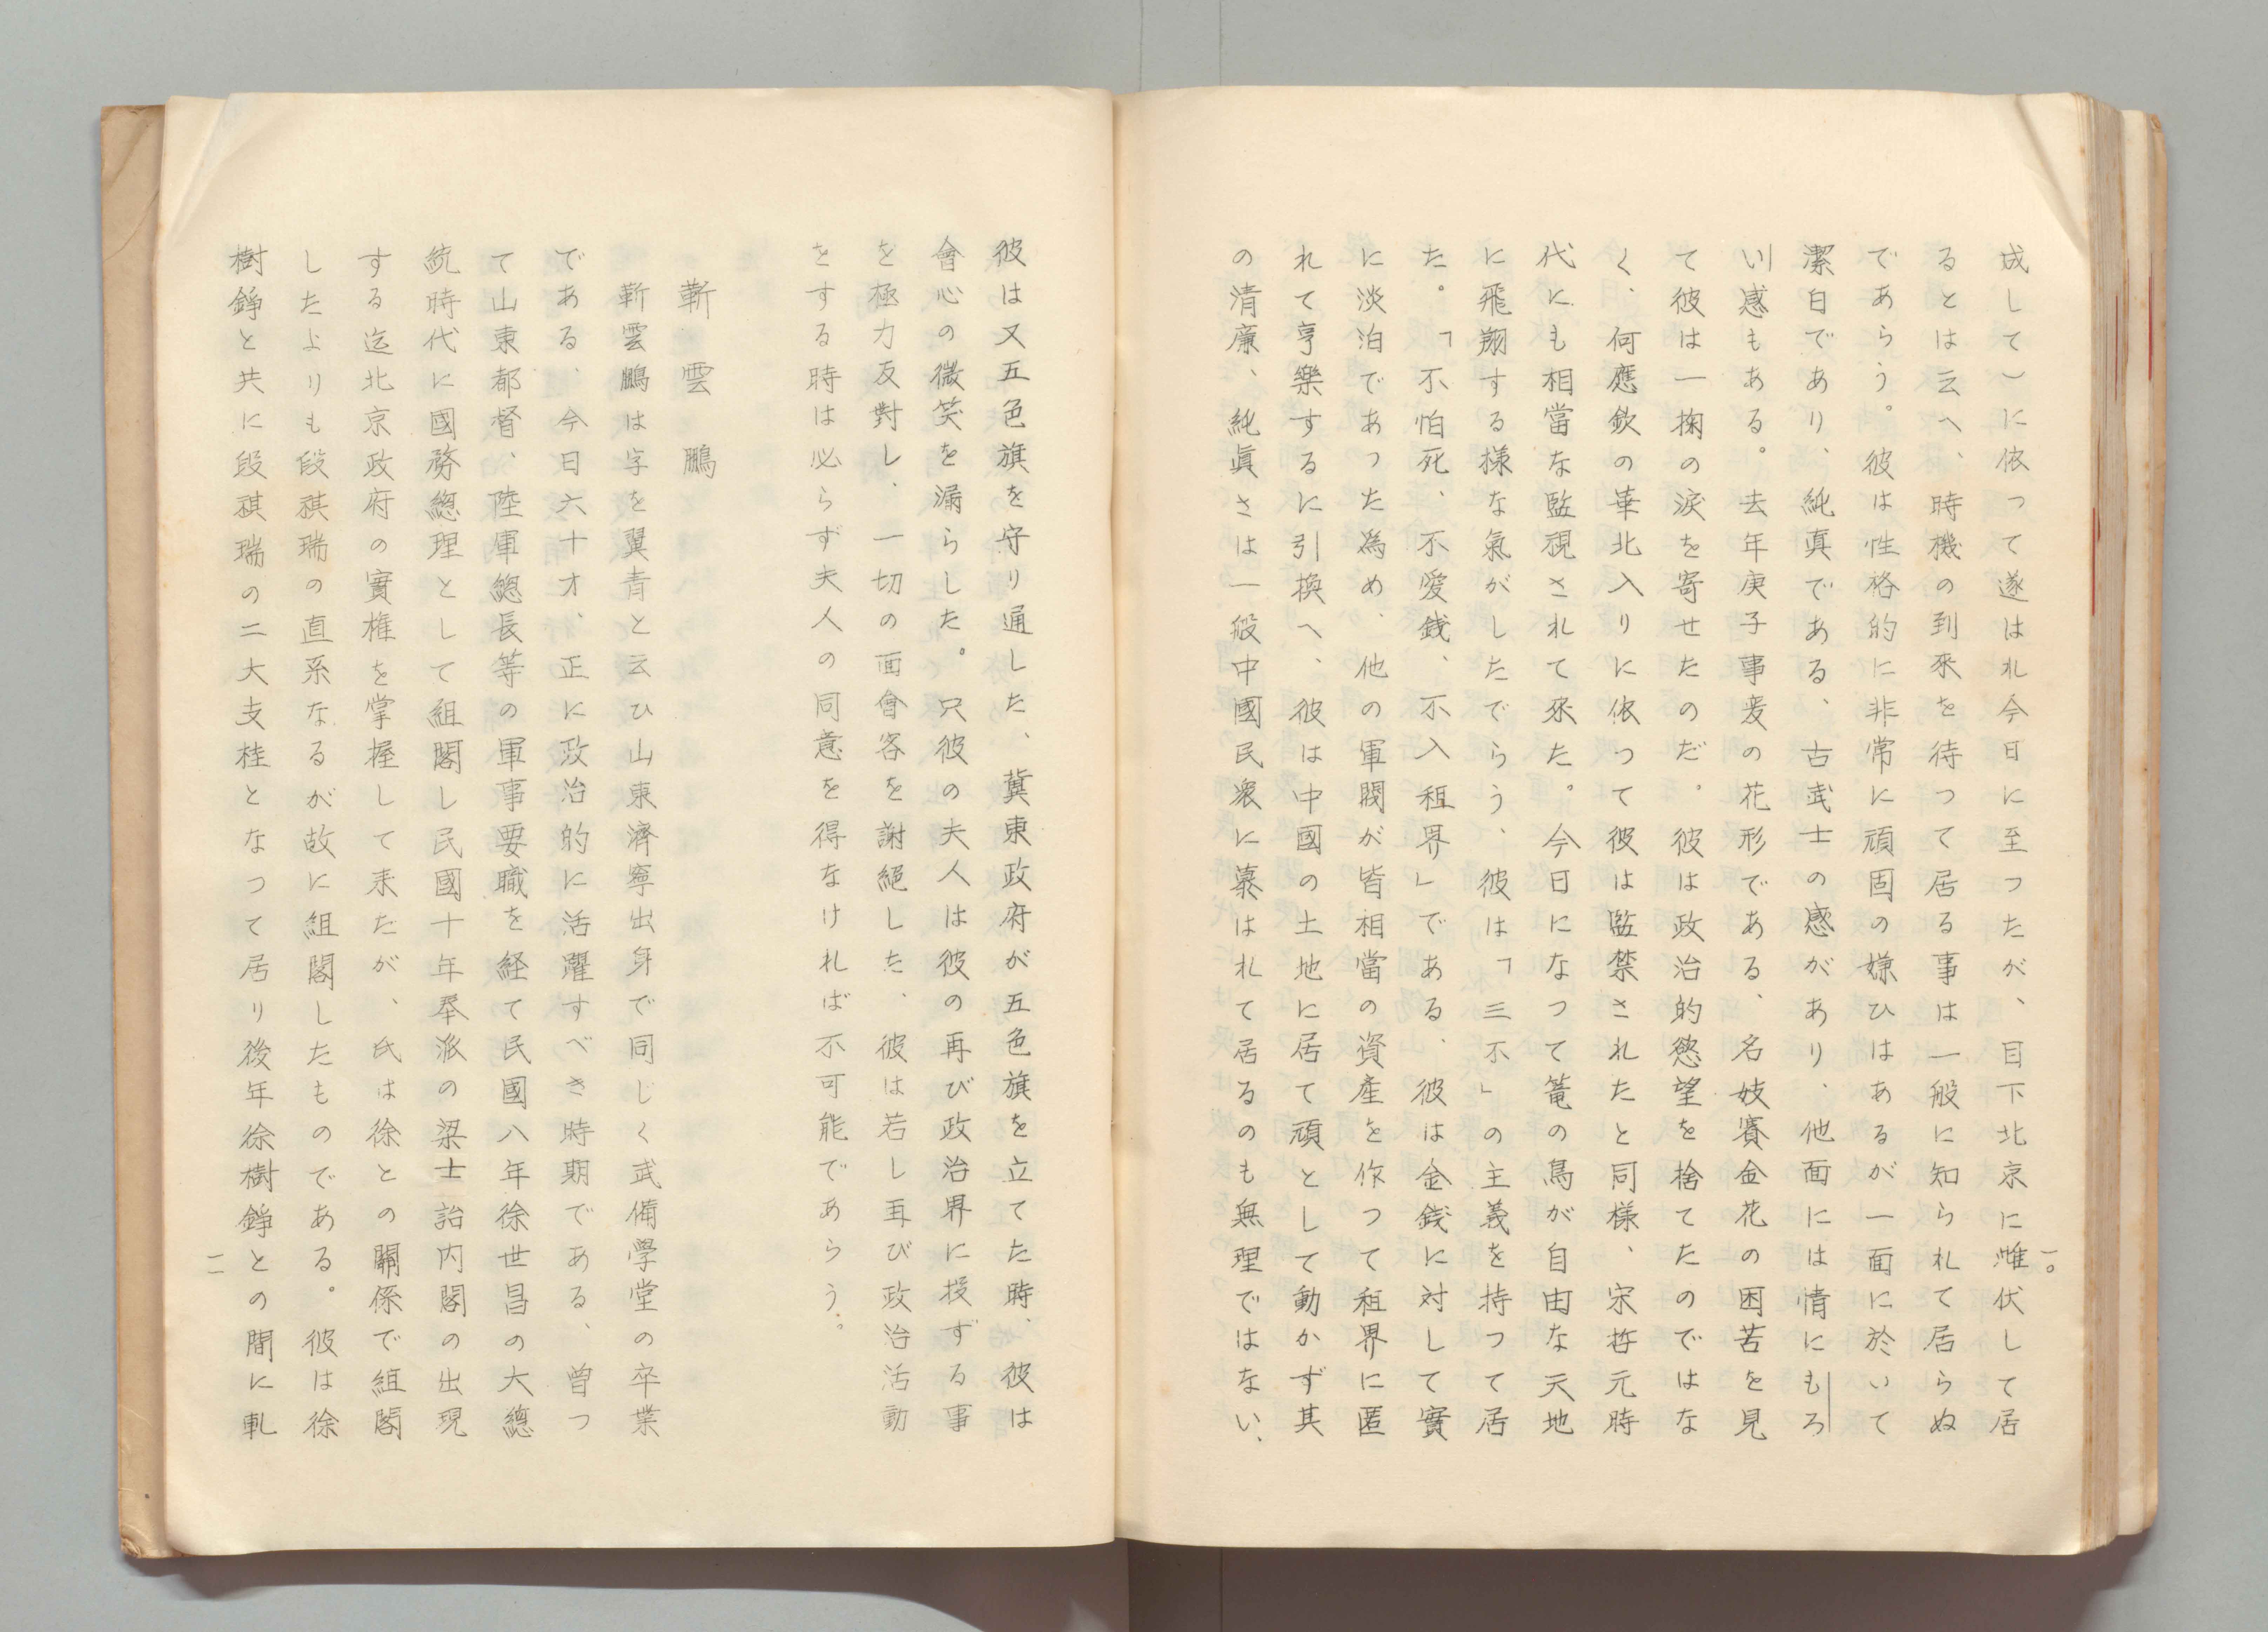 成して)に依って遂はれ今日に至つたが、目下北京に雌伏して居
るとは云へ、時機の到來を待つて居る事は一般に知られて居らぬ
であらう。彼は性格的に非常に頑固の嫌ひはあるが一面に於いて
潔白であり、純真である、古武士の感があり、他面には情にもろ
い感もある。去年庚子事変の花形である、名妓賽金花の困苦を見
て彼は一掬の涙を寄せたのだ。彼は政治的慾望を捨てたのではな
く、何應欽の華北入りに依つて彼は監禁されたと同様、宋哲元時
代にも相當な監視されて來た。今日になつて篭の鳥が自由な天地
に飛翔する様な氣がしたでらう、彼は「三不」の主義を持つて居
た。「不怕死、不愛銭、不入租界」である、彼は金銭に対して實
に淡泊であつた為め、他の軍閥が皆相當の資産を作つて租界に匿
れて享樂するに引換へ、彼は中國の土地に居て頑として動かず其
の清廉、純眞さは一般中國民衆に慕はれて居るのも無理ではない、
一〇
彼は又五色旗を守り通した、冀東政府が五色旗を立てた時、彼は
會心の微笑を漏らした。只彼の夫人は彼の再び政治界に投ずる事
を極力反對し、一切の面會客を謝絕した、彼は若し再び政治活動
をする時は必らず夫人の同意を得なければ不可能であらう。
靳雲鵬
靳雲鵬は字を翼青と云ひ山東濟寧出身で同じく武備學堂の卒業
である、今日六十才、正に政治的に活躍すべき時期である、曽つ
て山東都督、陸軍總長等の軍事要職を経て民國八年徐世昌の大總
統時代に國務總理として組閣し民國十年奉派の梁士詒内閣の出現
する迄北京政府の實権を掌握して来たが、氏は徐との関係で組閣
したよりも段祺瑞の直系なるが故に組閣したものである。彼は徐
樹錚と共に段祺瑞の二大支柱となつて居り後年徐樹錚との間に軋
一一